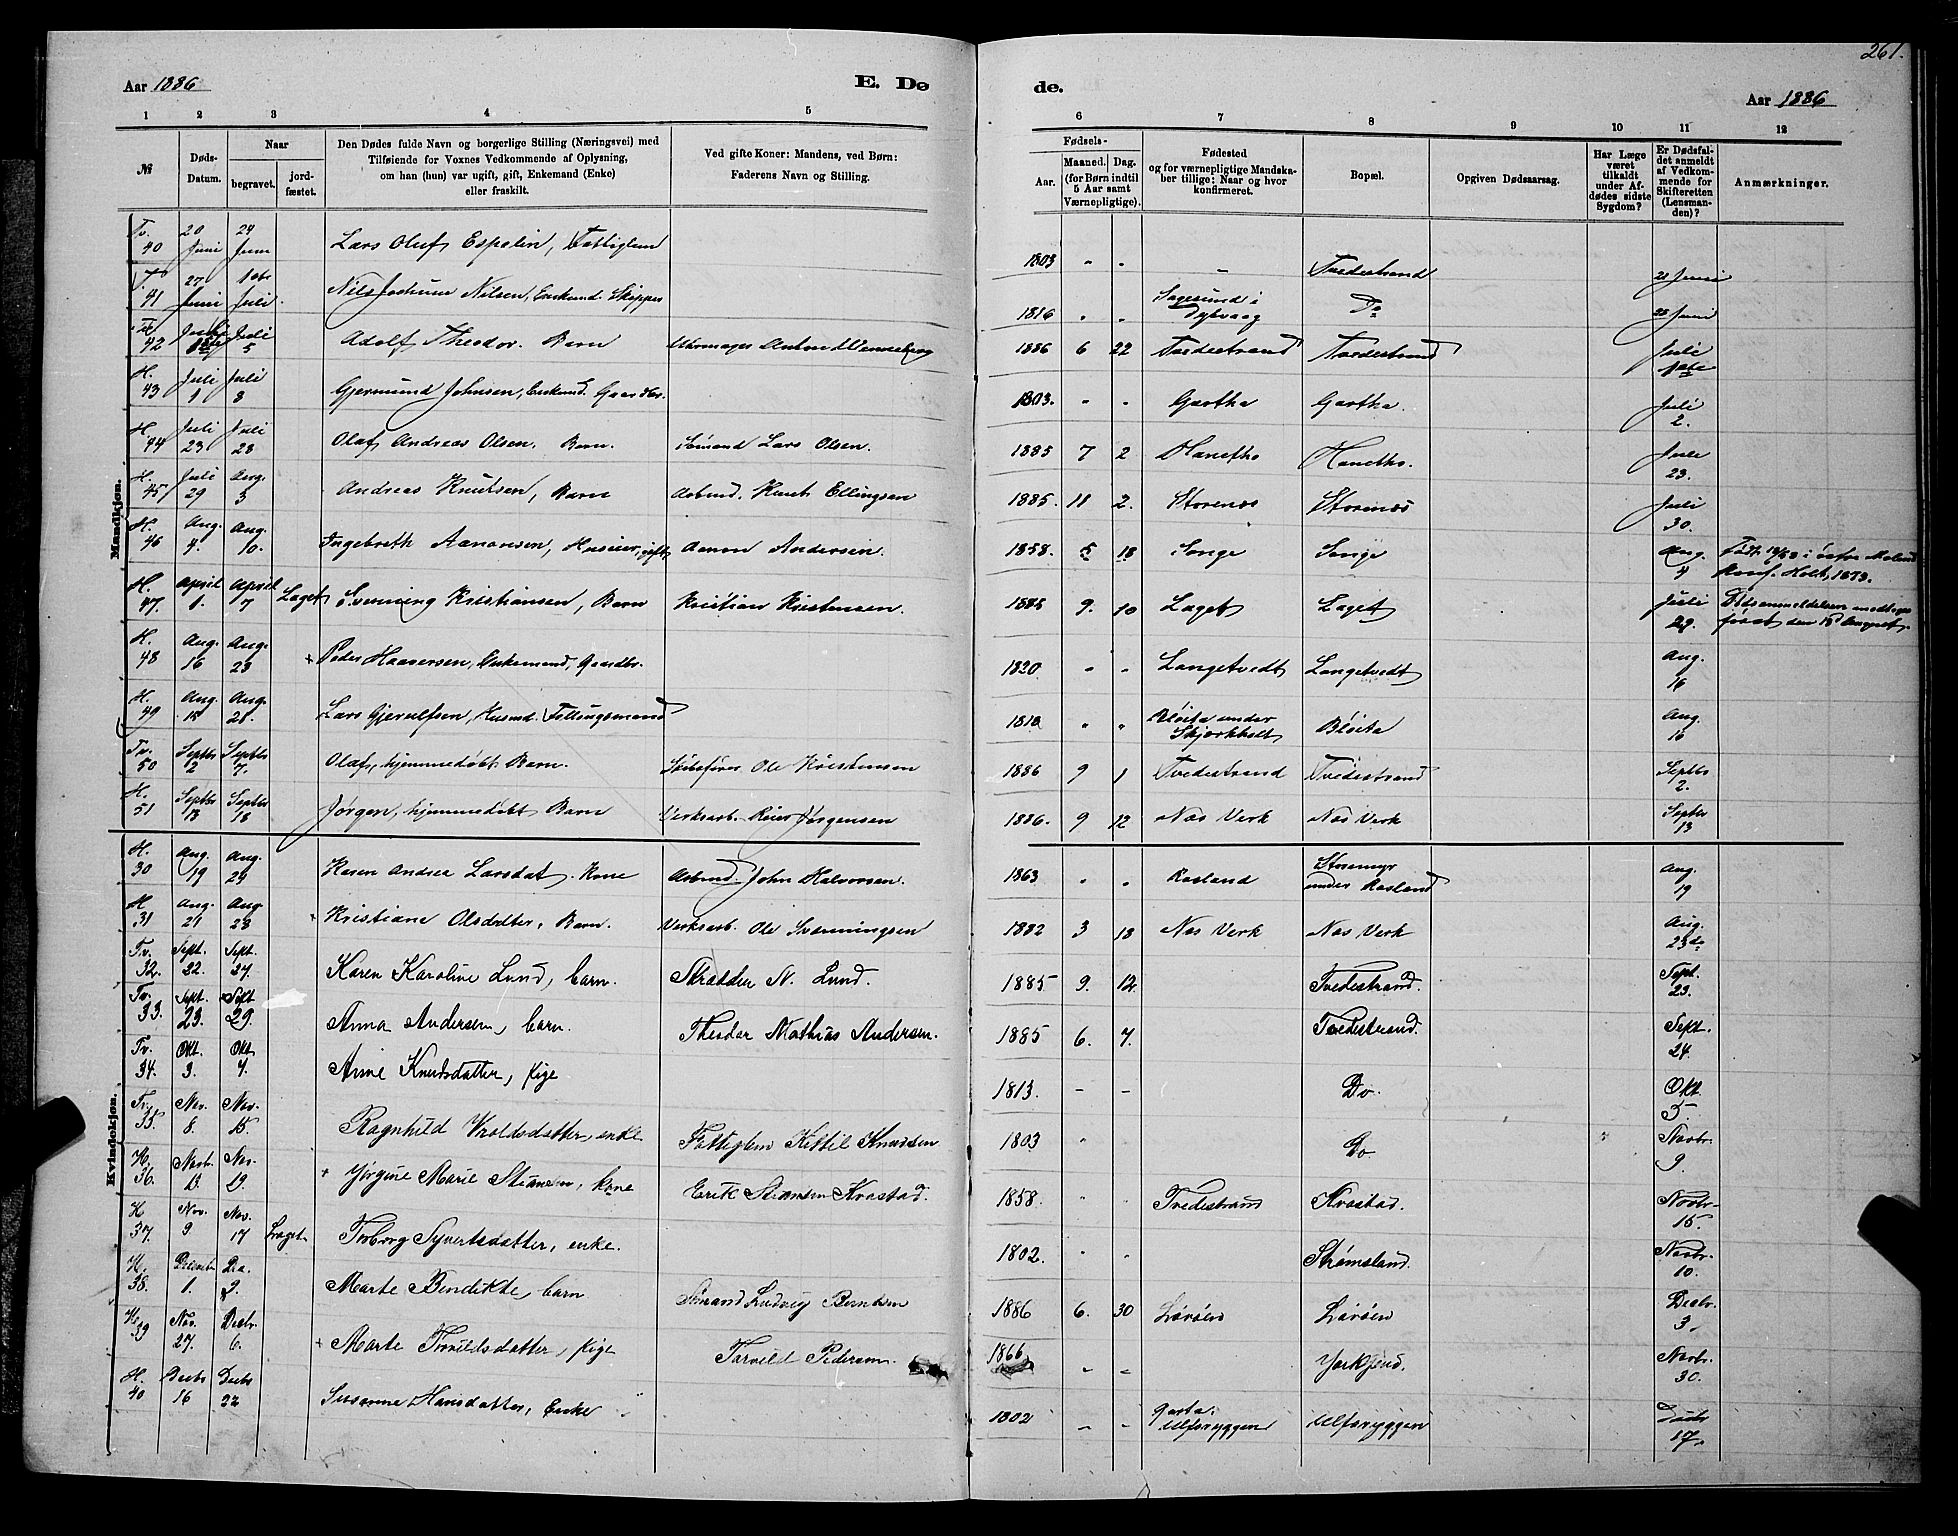 261.
Aar 1886
E. Dø
de.
Aar 1886
1 2 3 4 5 6 7 8 9 10 11 12
№
Døds-Datum.
Naar
begravet.
jord-fæstet.
Den Dødes fulde Navn og borgerlige Stilling (Næringsvei) med
Tilføiende for Voxnes Vedkommende af Oplysning,
om han (hun) var ugift, gift, Enkemand (Enke)
eller fraskilt.
Ved gifte Koner: Mandens, ved Børn:
Faderens Navn og Stilling.
Fødsels-
Aar.
Maaned. Dag.
(for Børn indtil
5 Aar samt
Værnepligtige).
Fødested
og for værnepligtige Mandska-
ber tillige: Naar og hvor
konfirmeret.
Bopæl.
Opgiven Dødsaarsag.
Har Læge
været
tilkaldt
under Af-
dødes sidste
Sygdom?
Er Dødsfal-
det anmeldt
af Vedkom-
mende for
Skifteretten
(Lensman-
den)?
Anmærkninger.
Mandkjøn.
Tv. 40 20 Juni 24 Juni Lars Oluf Espelin, Fattiglem 1803 " " – Tvedestrand 21 Juni
T. 41 27 Juni 1ste Juli Nils Jochum Nilsen, Enkemd. Skipper 1816 " " Sagesund i Dybvaag Do 28 Juni
42 Juli 1ste Juli 5 Adolf Theodor. Barn Uhrmager Anton Wenneberg 1886 6 22 Tvedestrand Tvedestrand Juli 1ste
H. 43 Juli 1 Juli 8 Gjermund Johnsen, Enkemd. Gaardbr. 1803. " " Gartha Gartha. Juli 2.
H. 44 Juli 23 Juli 28 Olaf Andreas Olsen. Barn Sømand Lars Olsen. 1885 7 2 Hanetho Hanetho. Juli 23.
H. 45 Juli 29 Aug. 3 Andreas Knutsen, Barn Arbmd. Knut Ellingsen 1885. 11 2. Storenæs Storenæs Juli 30.
H. 46 Aug. 4. Aug. 10. Ingebreth Aanonsen, Huseier, gift Aanon Andersen. 1858. 5 18 Songe Songe Aug. 4 Født 18/5 58 i østre Moland Konf. Holt, 1873.
H. 47. April 1. April 7 Laget Svenning Kristiansen, Barn Kristian Kristensen. 1885 9. 10 Laget Laget Juli 29. Dødsanmeldelsen modtages først den 15 August.
H. 48 Aug. 16 Aug. 23 + Peder Haaversen, Enkemand, Gaardbr. 1820 " " Langetvedt Langetvedt Aug. 16
H. 49 Aug. 15 Aug. 21. Lars Gjerulfsen, Husmd. Fellingsmand 1810 " " Bløita under Skjerkholt Bløita Aug. 16
Tv. 50 Septbr 2 Septbr 7. Olaf, hjemmedøbt Barn. Skibsfører Ole Kristensen 1886 9 1 Tvedestrand Tvedestrand Septbr 2.
H. 51 Septbr 13 Septbr 18 Jørgen, hjemmedøbt Barn Verksarb. Reier Jørgensen 1886. 9 12 Nas Verk Nas Verk Septbr 13
Kvindekjøn.
H. 30 Aug. 19 Aug. 24 Karen Andrea Larsdat. Kone Arbmd. John Halvorsen. 1863 " " Rosland Storemyr under Rosland Aug. 19
H 31 Aug. 21 Aug 28 + Kristiane Olsdatter, Barn. Verksarb. Ole Svenningsen 1882 3 18 Nas Verk Nas Verk Aug. 23de
Tv. 32. Sept. 22. Sept. 27. Karen Karoline Lund, barn. Skrædder N. Lund. 1885 9. 12 Tvedestrand. Sept. 23.
Tv. 33. Sept. 23. Sept 29. Anna Andersen, barn. Theodor Mathias Andersen. 1885 6. 7. Tvedestrand. Sept. 24.
Tv. 34. Okt 3. Okt 7. Anne Knudsdatter, pige 1813 – – Do. Okt. 5.
Tv. 35. Nov. 8. Nov. 15. Ragnhild Vroldsdatter, enke Fattiglem Kittil Knudsen 1803 " Do. Novbr. 9.
H. 36. Novb. 13. Nov. 19. + Jørgine Marie Stiansen, kone Erik Stiansen Kvastad. 1858. " " Tvedestrand Kvastad. Novbr. 15.
H 37. Nov. 9 Nov. 17 Laget Torborg Syvertsdatter, enke. 1802. " " Strømsland. Novbr. 10.
H. 38. 1. Marte Bendikte, barn Sømand Ludvig Berntsen 1886 6. 30 Lørøen Lørøen Decbr. 3.
H. 39 Nov. 27. Decbr. 6. + Marte Torvildsdatter, pige Tarveld Pedersen. 1866 " – Novbr. 30.
H. 40 Decbr 16 Decbr 22 Susanne Hansdatter, Enke 1802 – – Garta. Ulfsryggen Ulfsryggen Decbr 17.